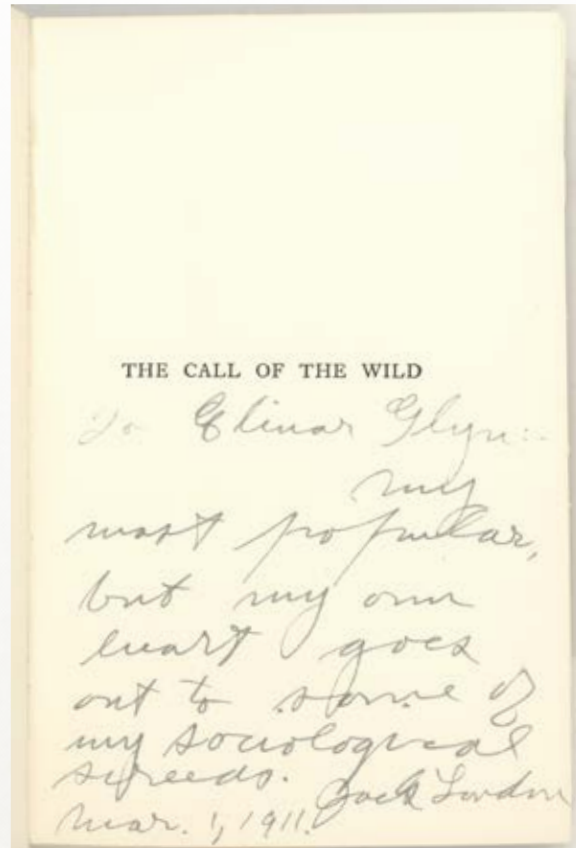 THE CALL OF THE WILD
To Elinor Glyn:—
my
most popular,
but my own
heart goes
out to some of
my sociological
screeds.
Jack London
Mar. 1, 1911.